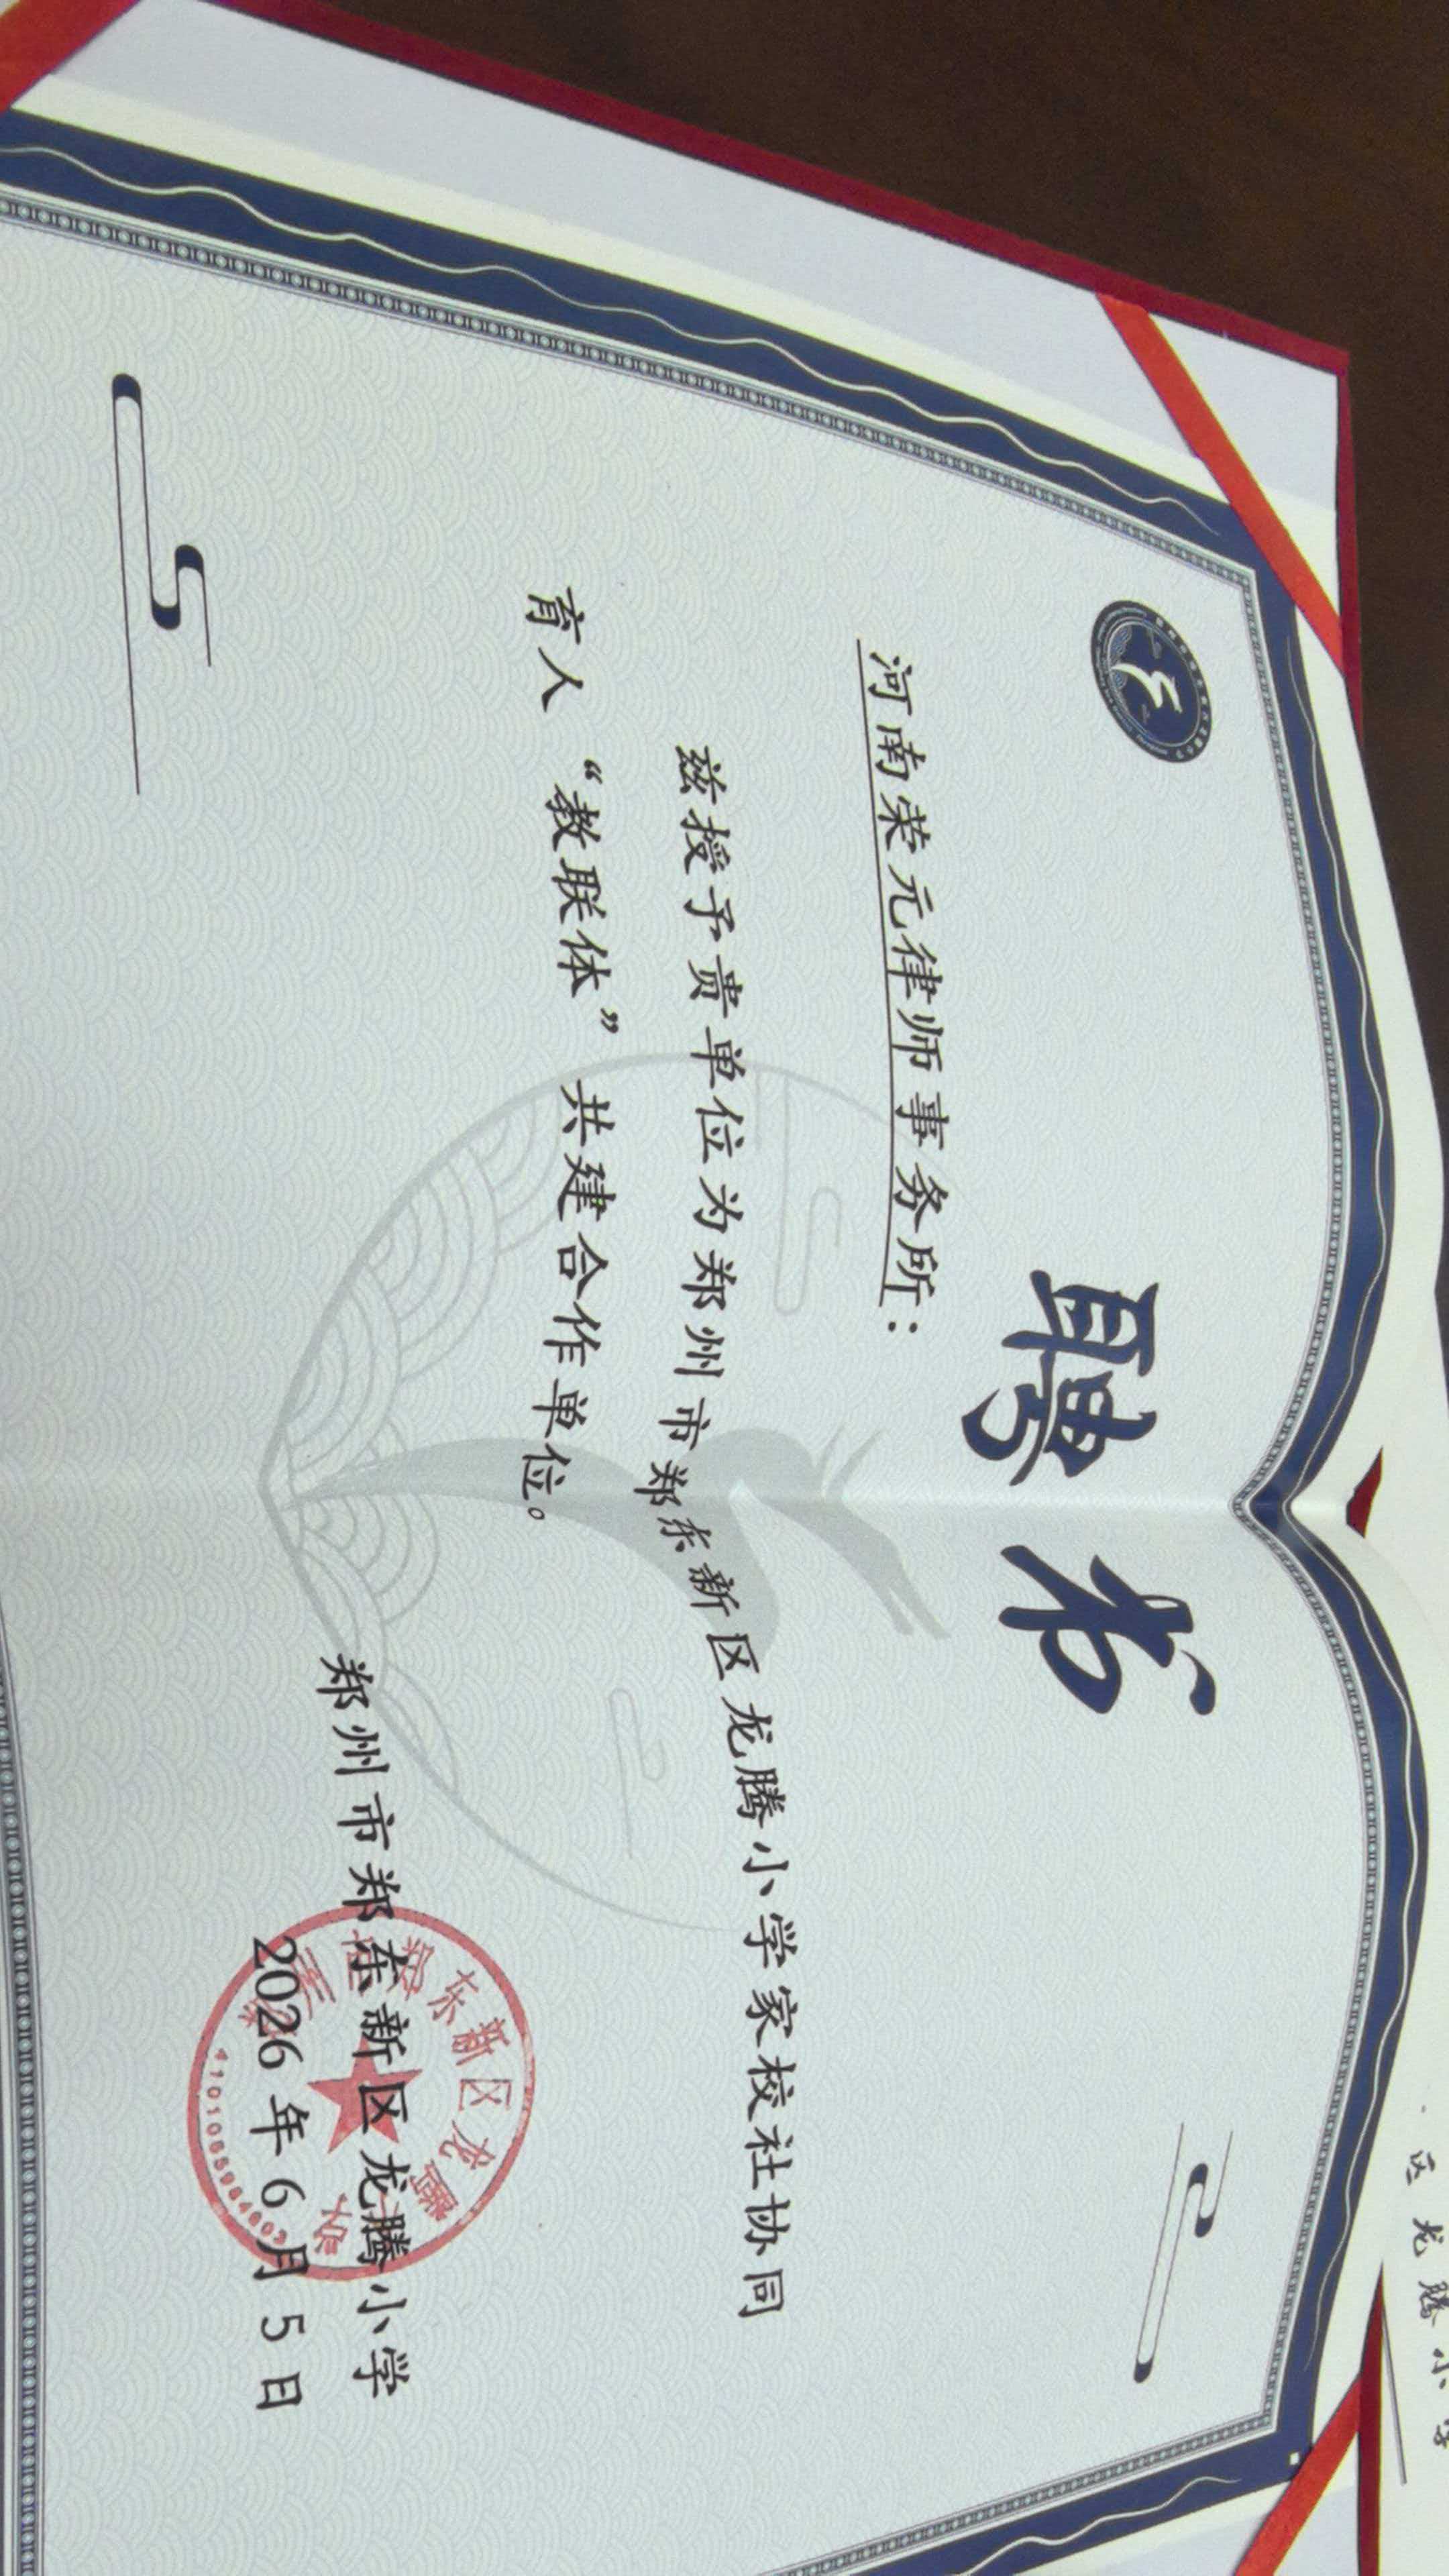 聘书
河南荣元律师事务所：
兹授予贵单位为郑州市郑东新区龙腾小学家校社协同
育人“教联体”共建合作单位。
郑州市郑东新区龙腾小学
2026年6月5日
郑州市郑东新区龙腾小学
区龙腾小学